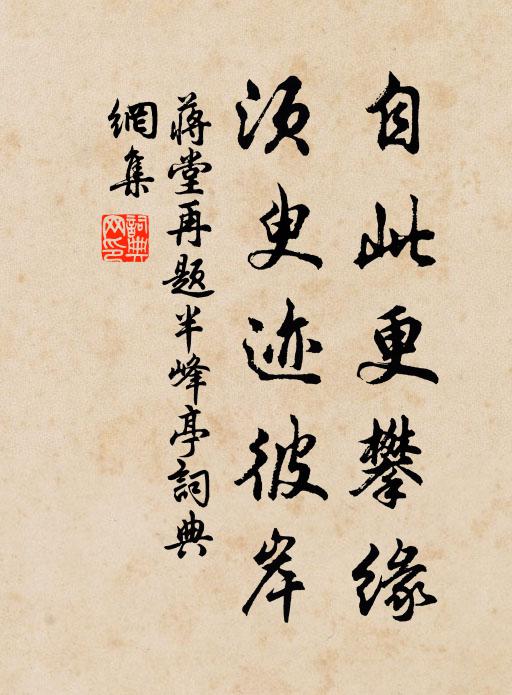 自此更攀缘
须臾迹彼岸
蒋堂再题半峰亭詞典
網集
詞典
网印